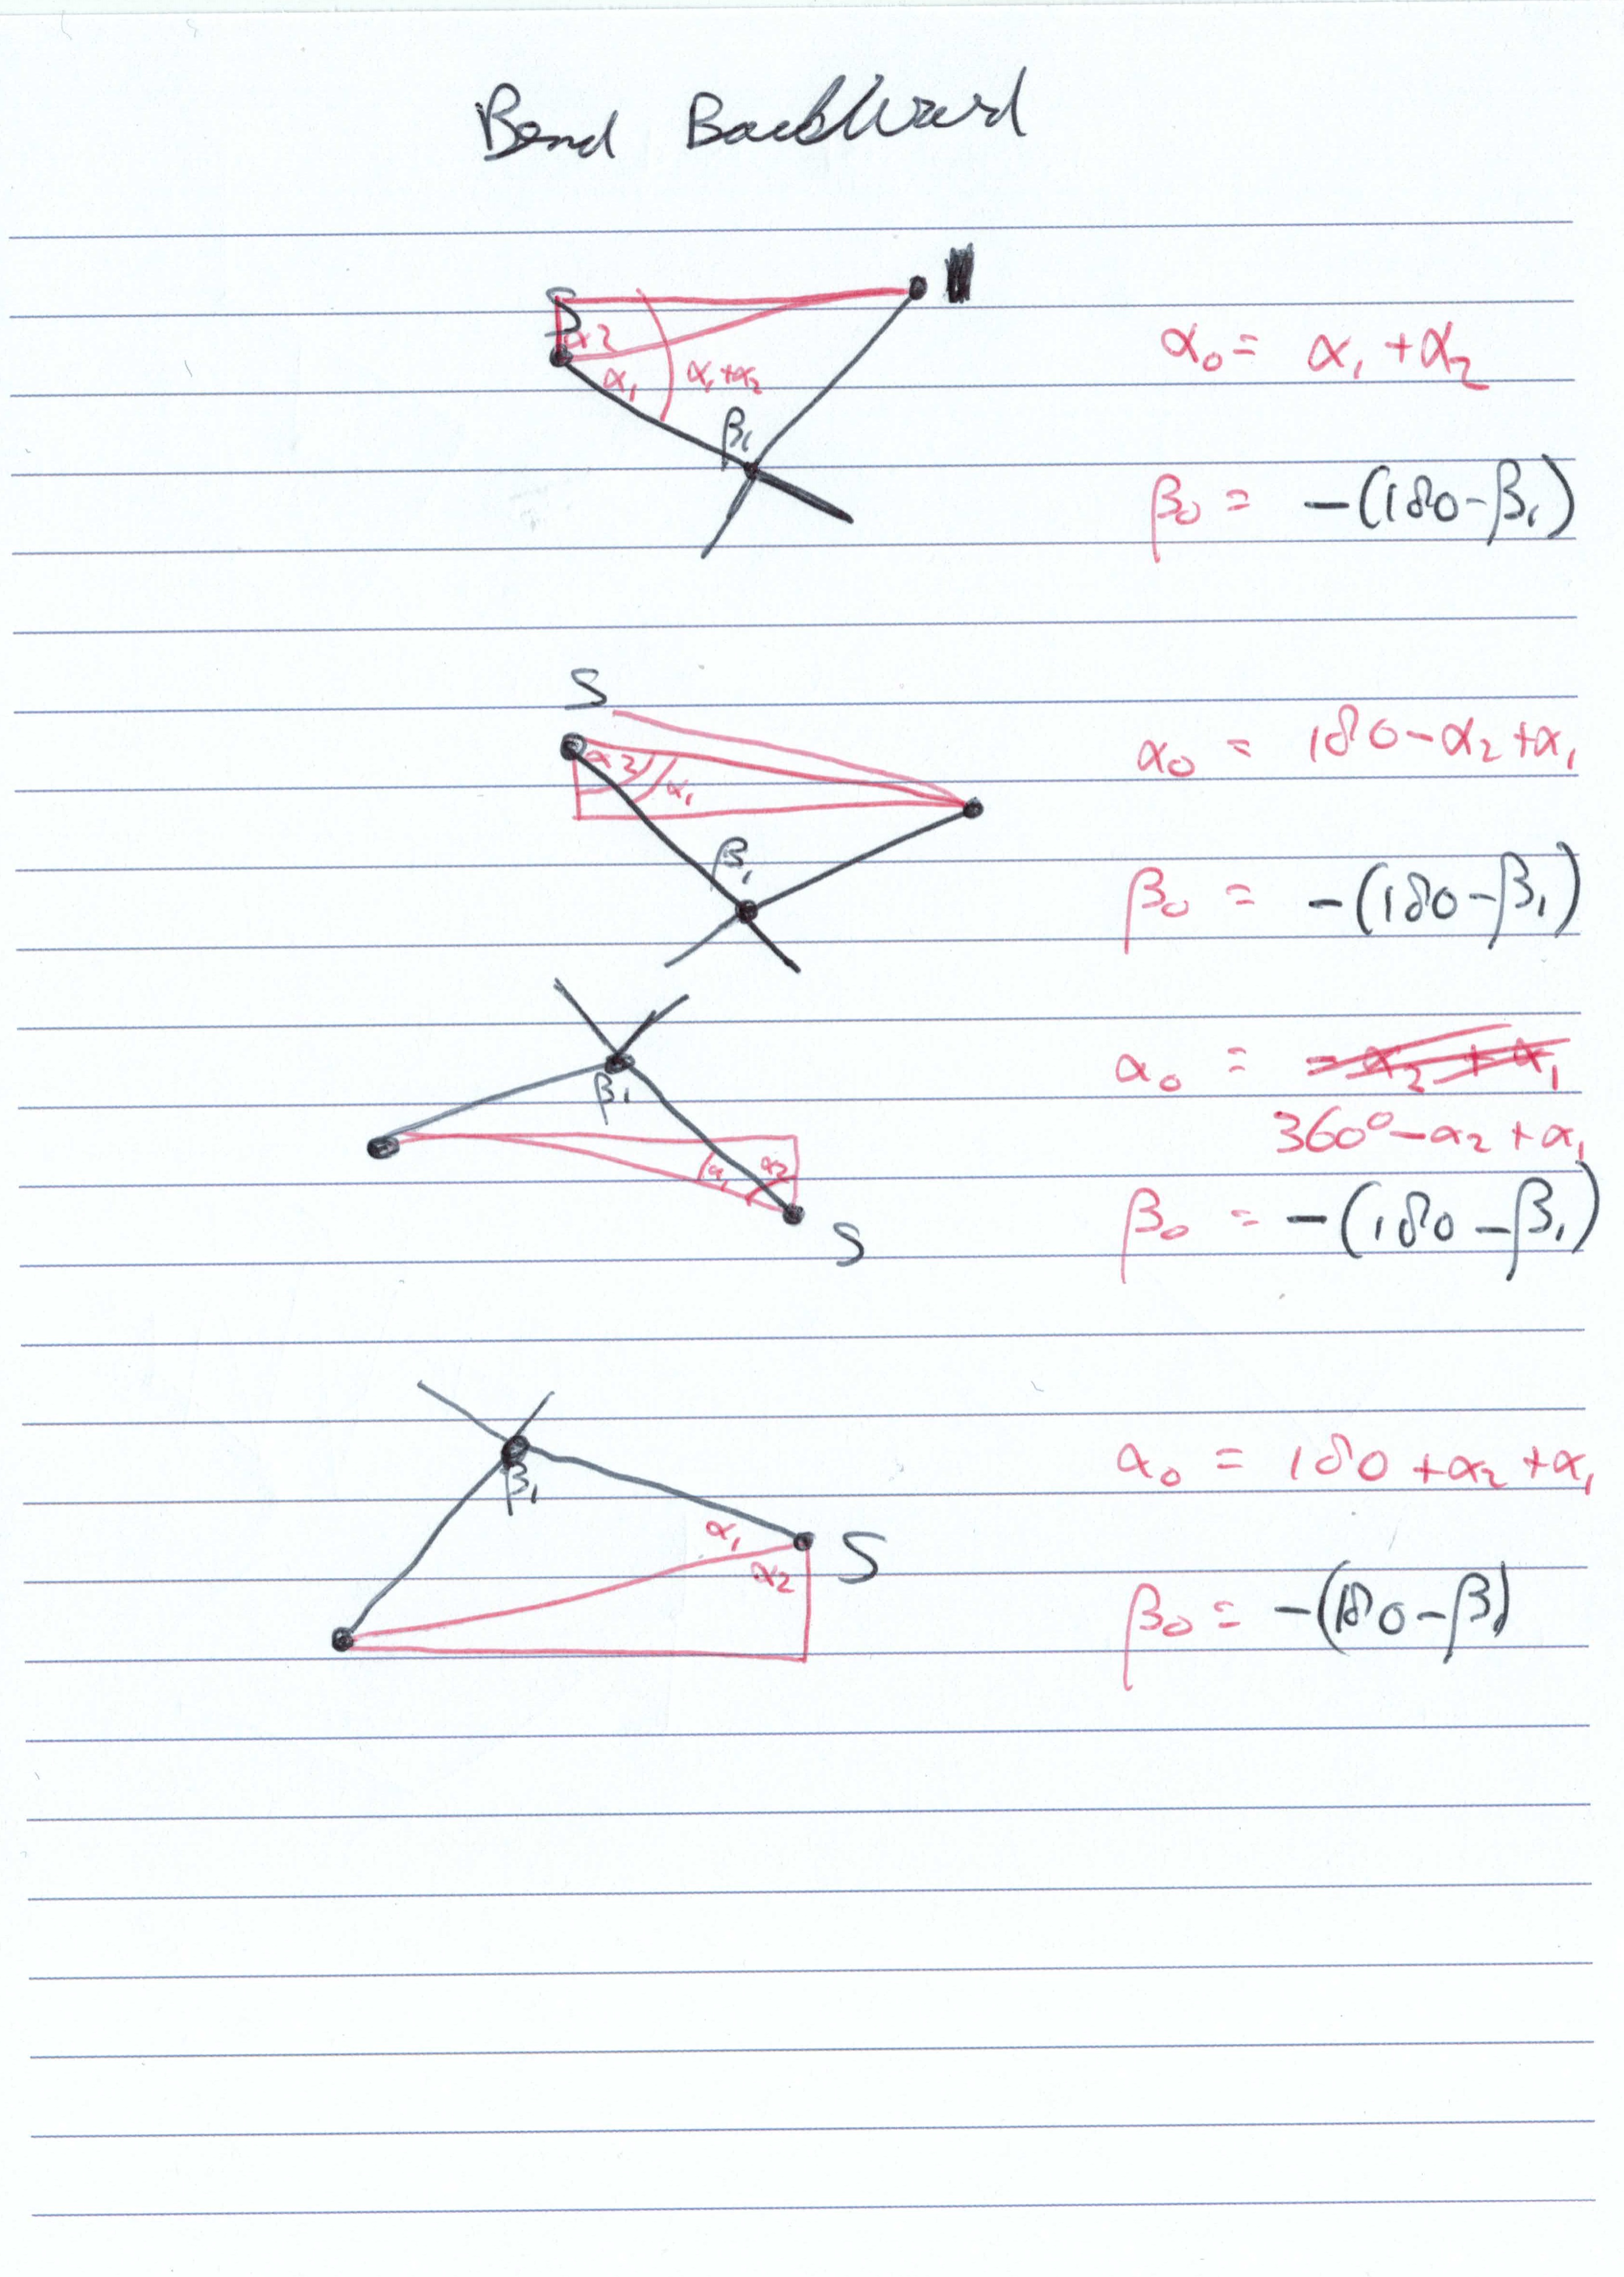 Bend BackWard
S
α2
α₁
α₁+α₂
β₁
α₀ = α₁ + α₂
β₀ = -(180-β₁)
S
α2
α₁
β₁
α₀ = 180-α₂+α₁
β₀ = -(180-β₁)
β₁
α₁
α2
S
α₀ = -α₂ + α₁
360°-α₂+α₁
β₀ = -(180-β₁)
β₁
α₁
α2
S
α₀ = 180+α₂+α₁
β₀ = -(180-β)